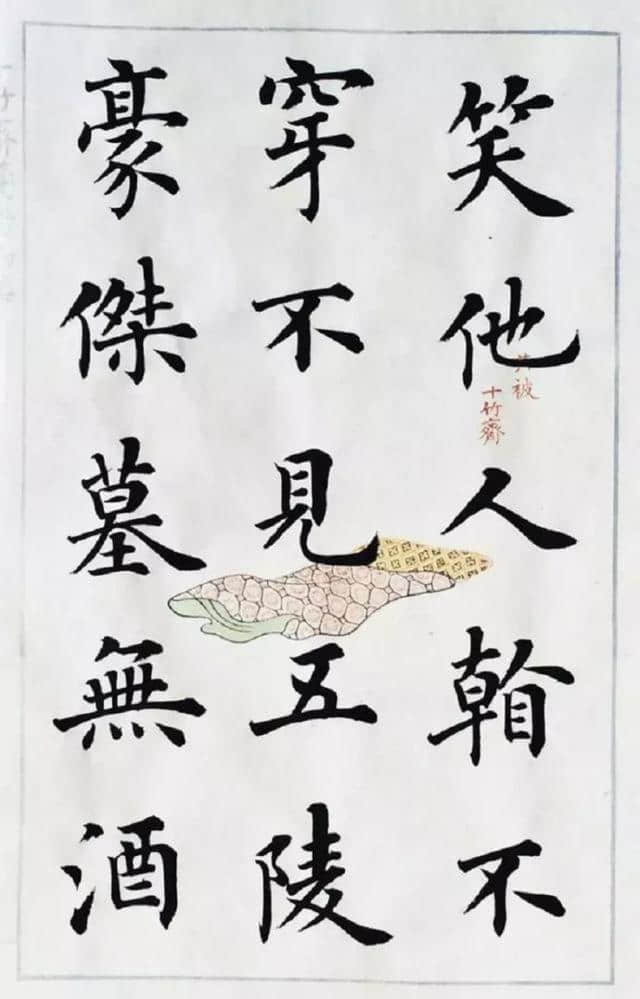 笑他人看不
穿不見五陵
豪傑墓無酒
姜被
十竹齋